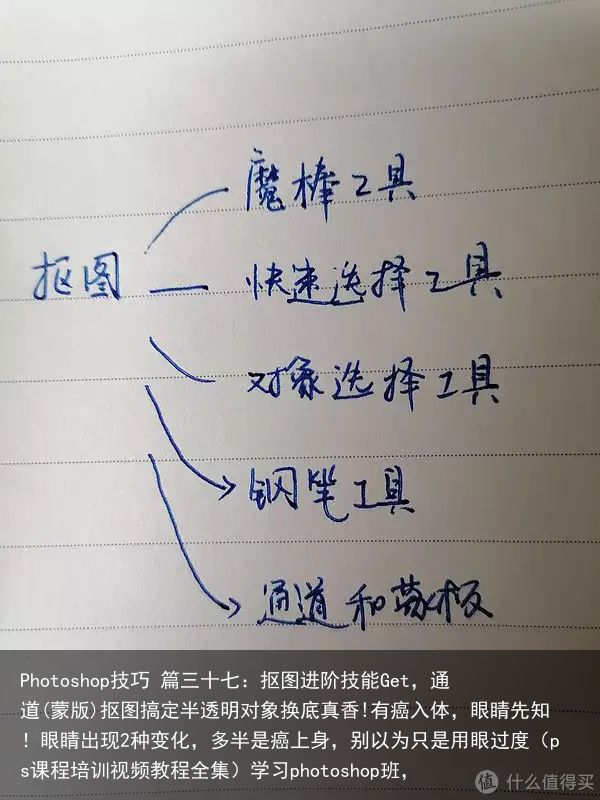 魔棒工具
抠图
快速选择工具
对象选择工具
钢笔工具
通道和蒙板
Photoshop技巧 篇三十七：抠图进阶技能Get，通
道(蒙版)抠图搞定半透明对象换底真香!有癌入体，眼睛先知
！眼睛出现2种变化，多半是癌上身，别以为只是用眼过度（p
s课程培训视频教程全集）学习photoshop班，
值 什么值得买